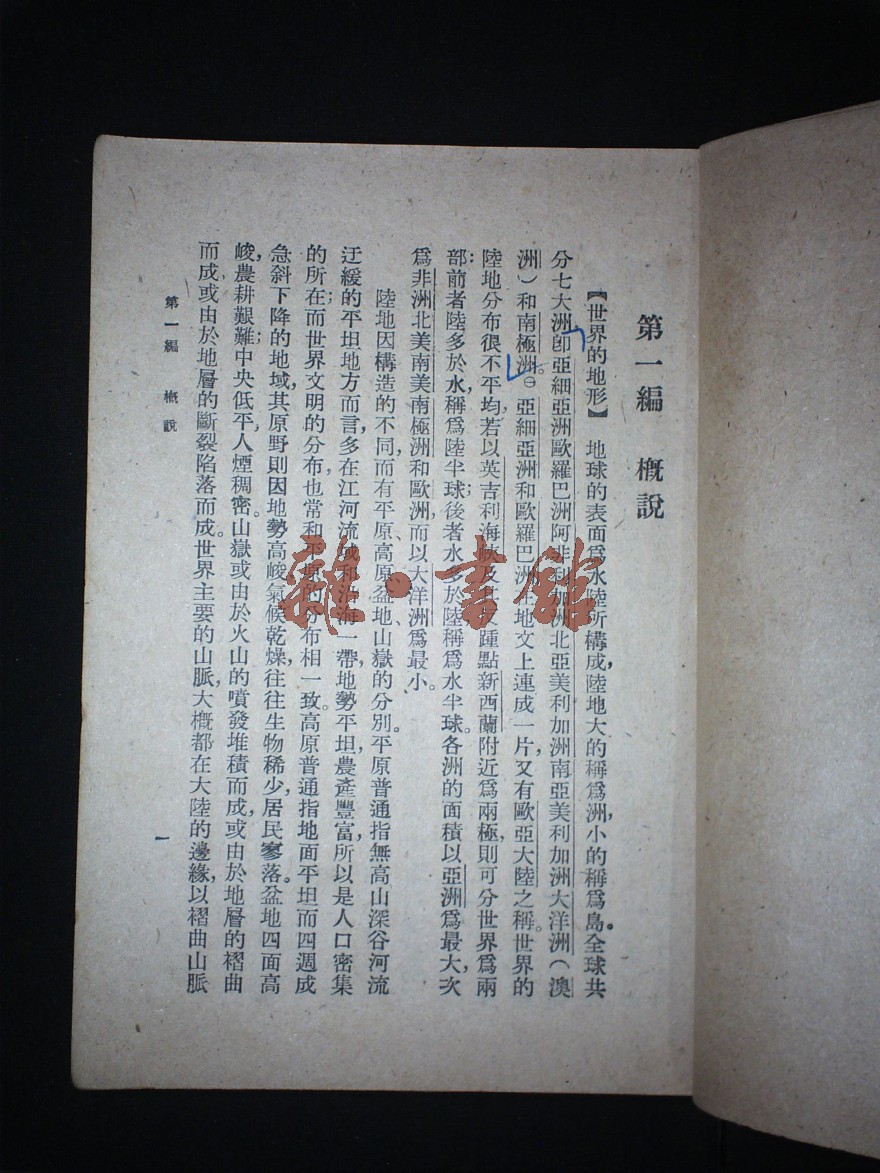 第一編　概說
【世界的地形】　地球的表面爲水陸所構成，陸地大的稱爲洲，小的稱爲島。全球共
分七大洲，卽亞細亞洲歐羅巴洲阿非利加洲北亞美利加洲南亞美利加洲大洋洲（澳
洲）和南極洲。㊀亞細亞洲和歐羅巴洲在地文上連成一片，又有歐亞大陸之稱。世界的
陸地分布很不平均，若以英吉利海峽及其反踵點新西蘭附近爲兩極，則可分世界爲兩
部：前者陸多於水，稱爲陸半球；後者水多於陸，稱爲水半球。各洲的面積以亞洲爲最大，次
爲非洲北美南美南極洲和歐洲，而以大洋洲爲最小。
陸地因構造的不同，而有平原、高原、盆地、山嶽的分別。平原普通指無高山深谷河流
迂緩的平坦地方而言，多在江河流域和沿海一帶，地勢平坦，農產豐富，所以是人口密集
的所在；而世界文明的分布，也常和平原的分布相一致。高原普通指地面平坦而四週成
急斜下降的地域，其原野則因地勢高峻，氣候乾燥，往往生物稀少，居民寥落。盆地四面高
峻，農耕艱難；中央低平，人煙稠密。山嶽或由於火山的噴發堆積而成，或由於地層的褶曲
而成，或由於地層的斷裂陷落而成。世界主要的山脈，大概都在大陸的邊緣，以褶曲山脈
第一編　概說
一
雜·書館